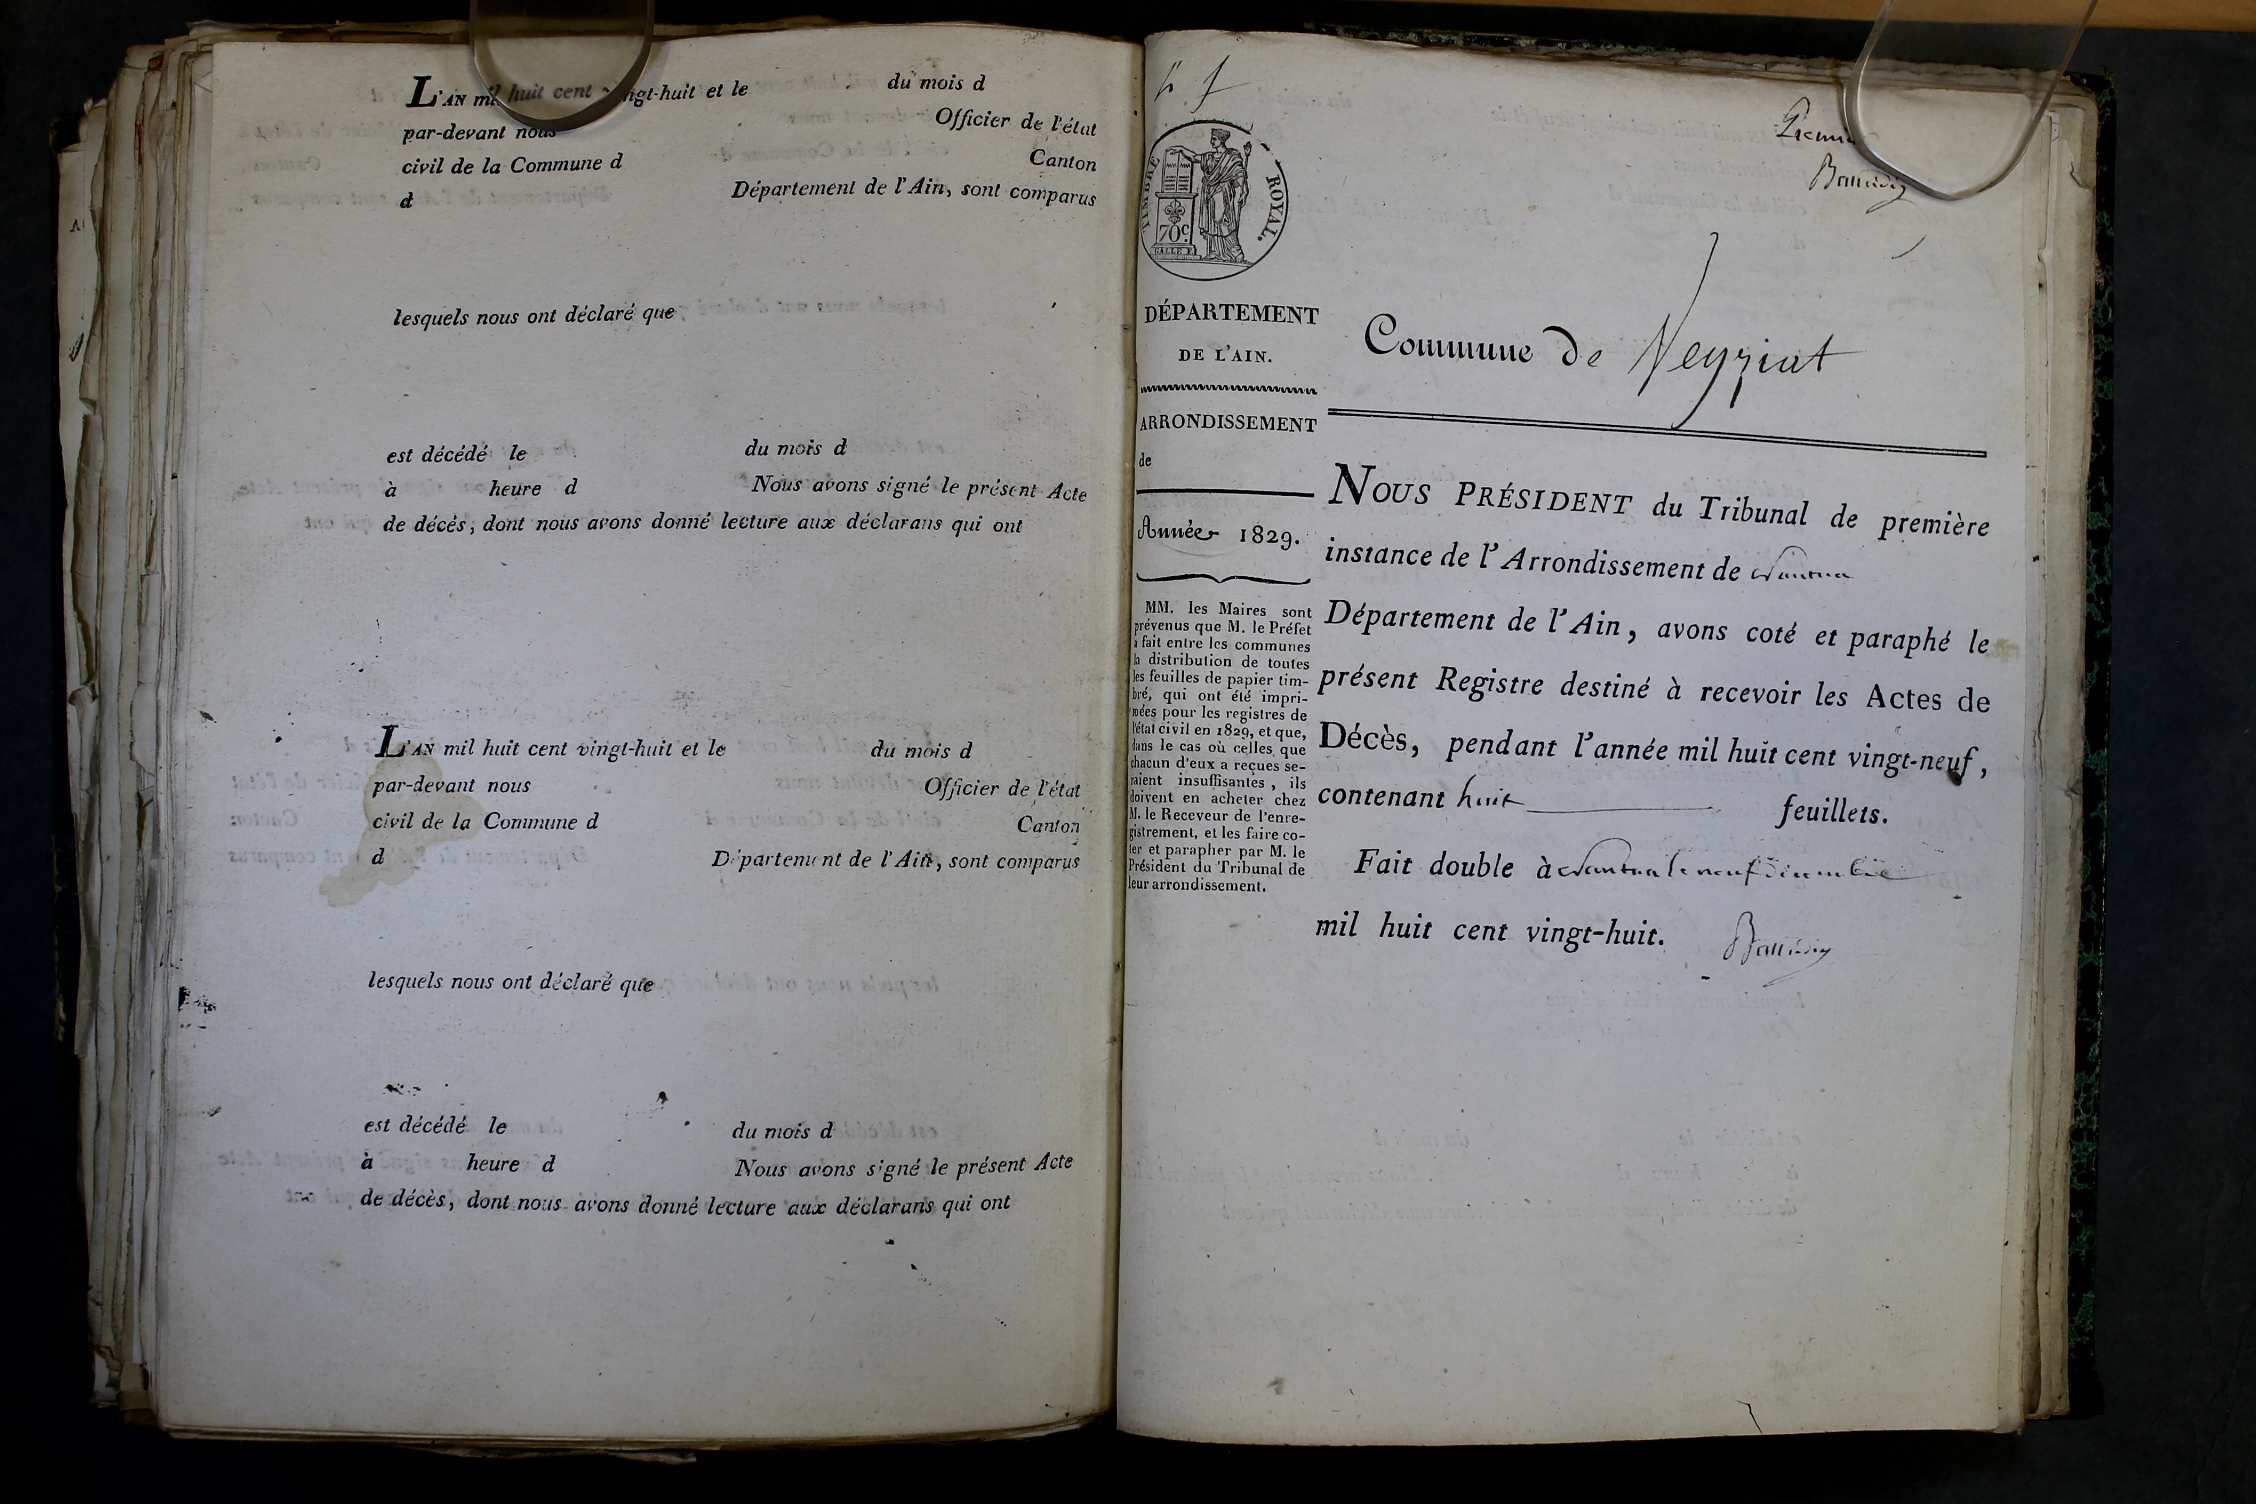 L'AN mil huit cent vingt-huit et le du mois d
par-devant nous Officier de l'état
civil de la Commune d Canton
d Département de l'Ain, sont comparus
lesquels nous ont déclaré que
est décédé le du mois d
à heure d Nous avons signé le présent Acte
de décès, dont nous avons donné lecture aux déclarans qui ont
L'AN mil huit cent vingt-huit et le du mois d
par-devant nous Officier de l'état
civil de la Commune d Canton
d Département de l'Ain, sont comparus
lesquels nous ont déclaré que
est décédé le du mois d
à heure d Nous avons signé le présent Acte
de décès, dont nous avons donné lecture aux déclarans qui ont
Premier
TIMBRE ROYAL.
70c.
DÉPARTEMENT
DE L'AIN.
ARRONDISSEMENT
de
Année 1829.
MM. les Maires sont
prévenus que M. le Préfet
a fait entre les communes
la distribution de toutes
les feuilles de papier tim-
bré, qui ont été impri-
mées pour les registres de
l'état civil en 1829, et que,
dans le cas où celles que
chacun d'eux a reçues se-
raient insuffisantes, ils
doivent en acheter chez
M. le Receveur de l'enre-
gistrement, et les faire co-
ter et parapher par M. le
Président du Tribunal de
leur arrondissement.
Commune de Veyziat
NOUS PRÉSIDENT du Tribunal de première
instance de l'Arrondissement de Nantua
Département de l'Ain, avons coté et paraphé le
présent Registre destiné à recevoir les Actes de
Décès, pendant l'année mil huit cent vingt-neuf,
contenant huit feuillets.
Fait double à Nantua le neuf Décembre
mil huit cent vingt-huit.